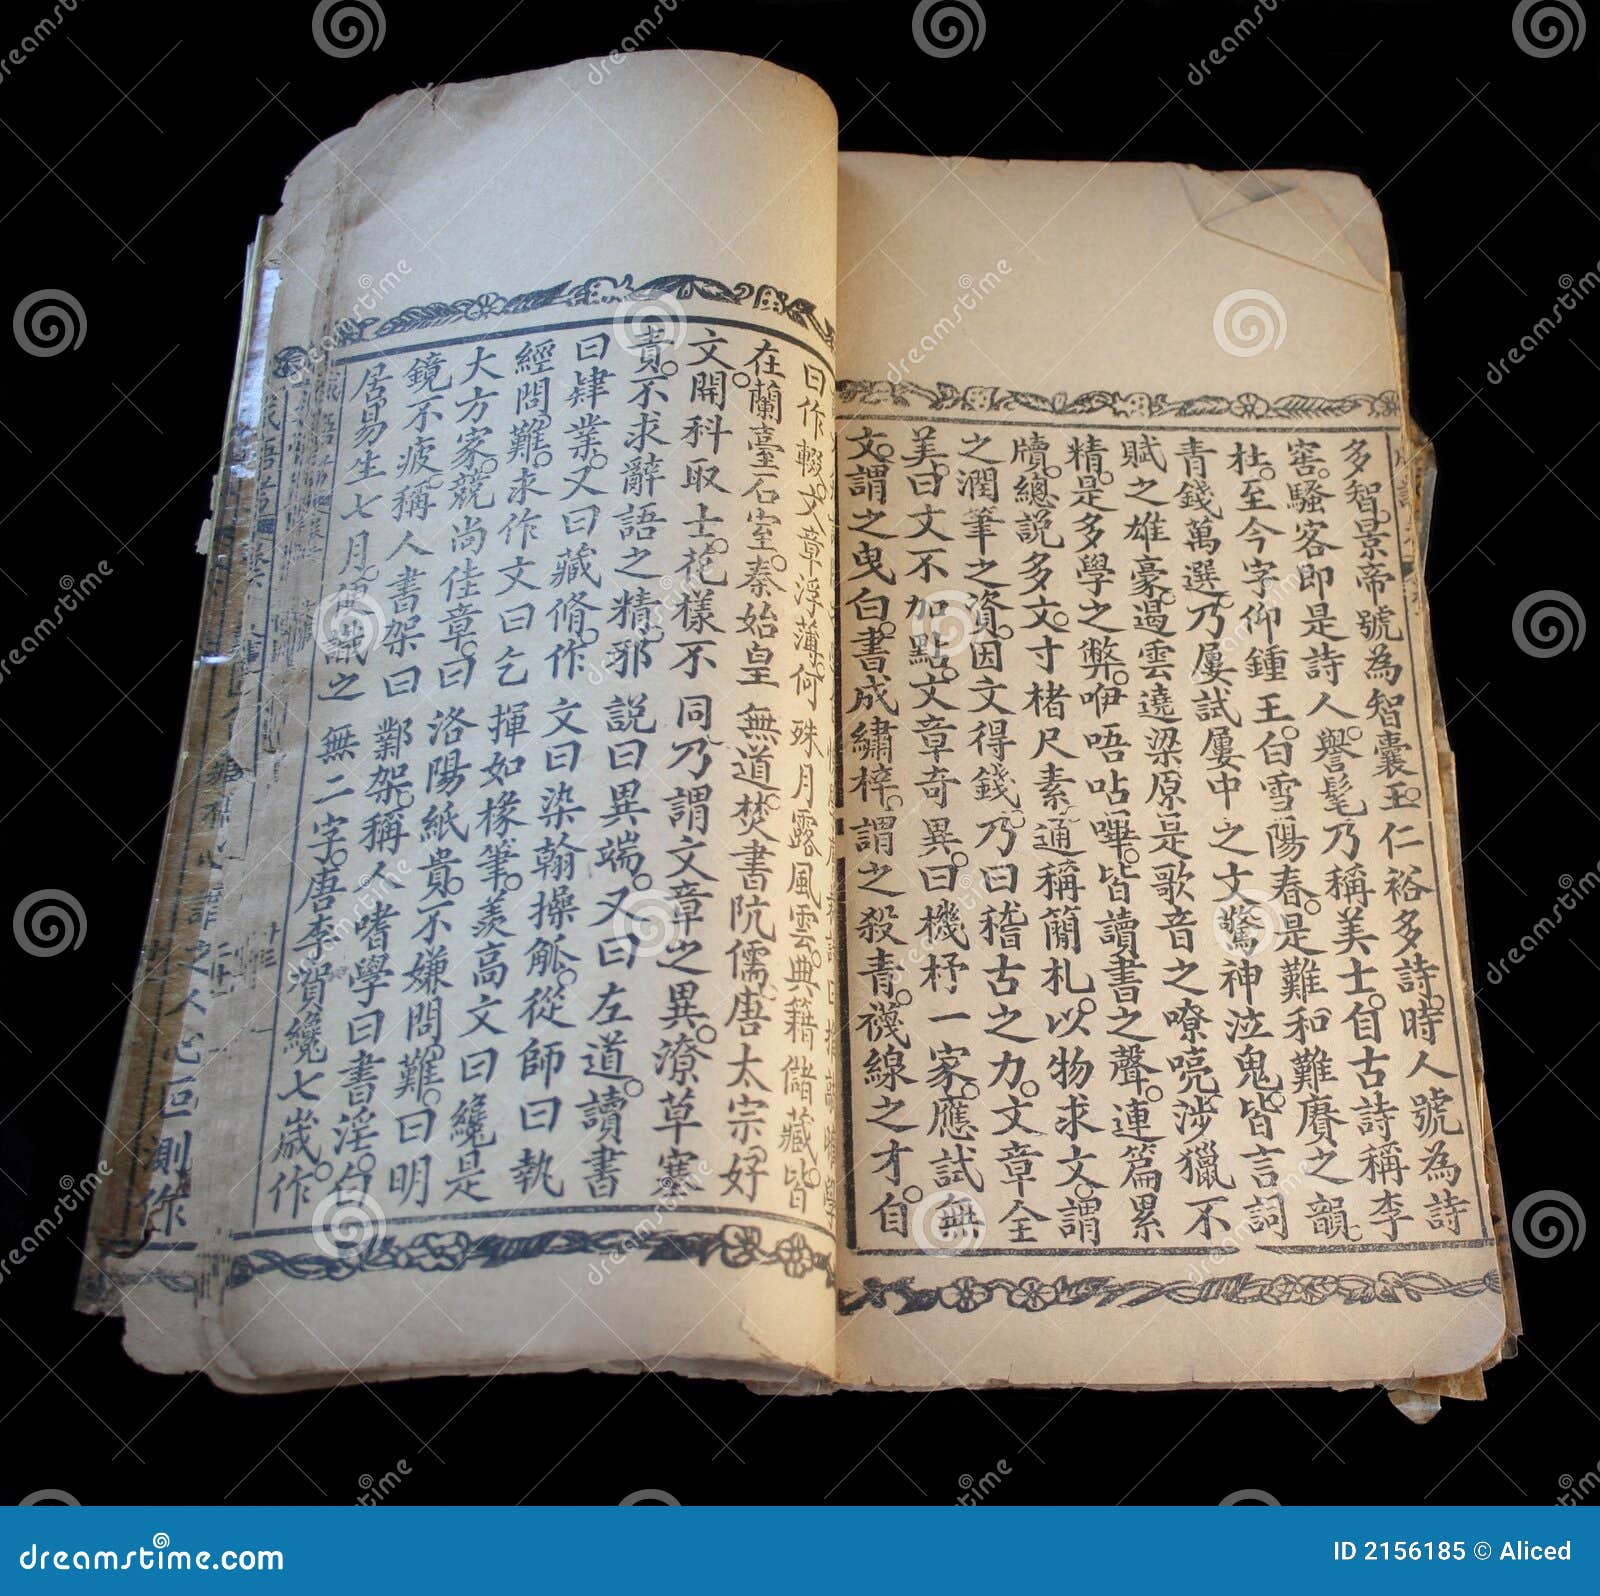 多智景帝號為智囊王仁裕多詩時人號為詩
窖騷客即是詩人譽髦乃稱美士自古詩稱李
杜至今字仰鍾王白雪陽春是難和難賡之韻
青錢萬選乃屢試屢中之文驚神泣鬼皆言詞
賦之雄豪遏雲遶梁原是歌音之嘹喨涉獵不
精是多學之弊咿唔呫嗶皆讀書之聲連篇累
牘總說多文寸楮尺素通稱簡札以物求文謂
之潤筆之資因文得錢乃曰稽古之力文章全
美曰文不加點文章奇異曰機杼一家應試無
文謂之曳白書成繡梓謂之殺青襪線之才自
曰作輟文章浮薄何殊月露風雲典籍儲藏皆
在蘭臺石室秦始皇無道焚書阬儒唐太宗好
文開科取士花樣不同乃謂文章之異潦草塞
責不求辭語之精邪說曰異端又曰左道讀書
曰肄業又曰藏脩作文曰染翰操觚從師曰執
經問難求作文曰乞揮如椽筆羨高文曰纔是
大方家競尚佳章曰洛陽紙貴不嫌問難曰明
鏡不疲稱人書架曰鄴架稱人嗜學曰書淫白
居易生七月便識之無二字唐李賀纔七歲作
dreamstime.com
ID 2156185 © Aliced